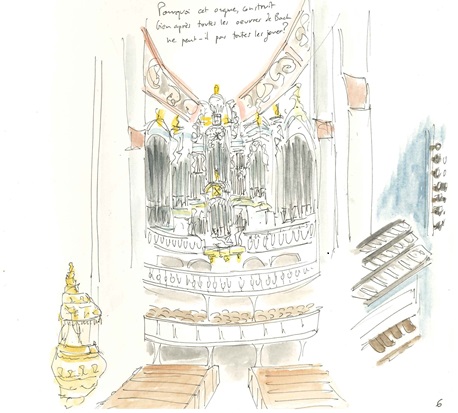 Pourquoi cet orgue, construit
bien après toutes les oeuvres de Bach
ne peut-il pas toutes les jouer?
6